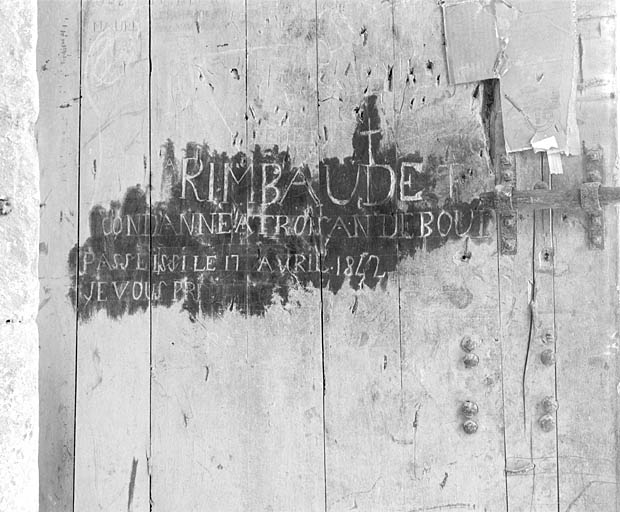 RIMBAUDE
CONDANNE A TROIS AN DE BOUL
PASSE ISSI LE 17 AVRIL 1842
JE VOUS PRI